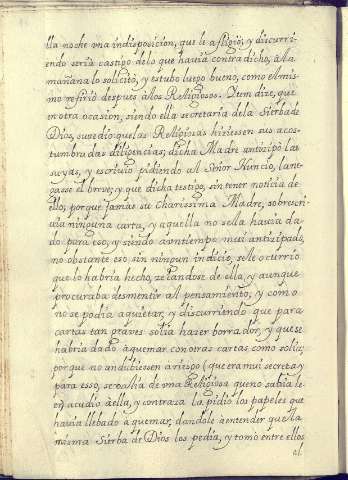 lla noche vna indisposicion, que le afligiò; y discurri-
endo seria castigo delo que havia contradicho, àla
mañana lo solicitò, y estubo luego bueno, como el mis
mo refiriò despues àlos Religiosos. Ytem dize, que
en otra ocasion, siendo ella secretaria dela Sierba de
Dios, sucediò que las Religiosas hiziessen sus acos-
tumbradas diligencias; dicha Madre antizipò las
suyas, y escriviò pidiendo al Señor Nuncio, lane-
gasse el breve; y que dicha testigo, sin tener noticia de
ello; porque jamàs su Charissima Madre, sobrescri-
via ninguna carta, y aquella no se la havia da-
do para eso, y siendo àun tiempo mui antizipado,
no obstante eso, sin ningun indicio, se le ocurriò
que lo habria hecho, zelandose de ella, y aunque
procuraba desmentir al pensamiento; y como
no se podia aquietar, y discurriendo que para
cartas tan graves solia hazer borrador, y que se
habria dado à quemar con otras cartas como solia;
porque no andubiessen à riesgo (que era mui secreta y
para esso, se valia de vna Religiosa que no sabia le-
er) acudiò àella, y con traza la pidiò los papeles que
havia llebado à quemar, dandole àentender que la
misma Sierba de Dios los pedia, y tomò entre ellos
el